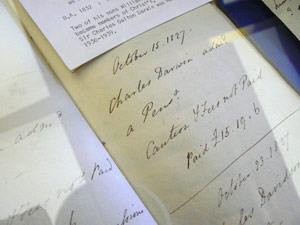 D,A, 1832
Two of his sons Willia
became members of Christ's,
Sir Charles Galton Darwin was
1936-1939.
October 15. 1827.
Charles Darwin admd
a Pensr
Caution & Fees not Paid
Paid £15. 19. 6
October 23. 1827
Charles Davidson
admd
Paid
not Paid